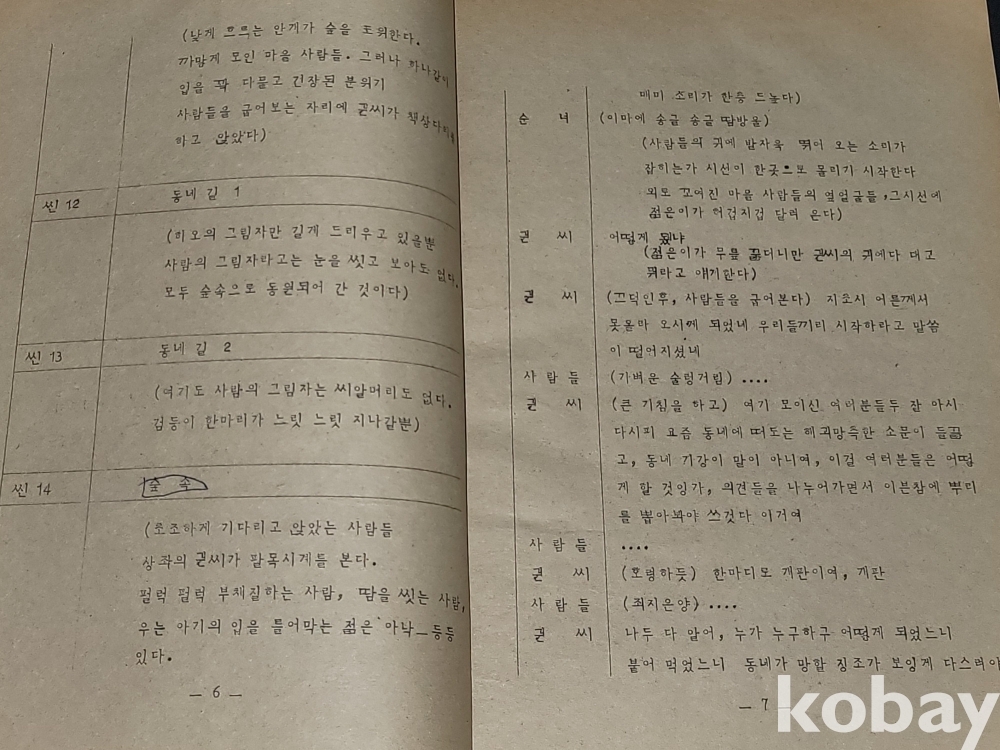 (낮게 흐르는 안개가 숲을 포위한다.
까맣게 모인 마을 사람들. 그러나 하나같이
입을 꽉 다물고 긴장된 분위기
사람들을 굽어보는 자리에 권씨가 책상다리를
하고 앉았다)
씬 12 동네 길 1
(히오의 그림자만 길게 드리우고 있을뿐
사람의 그림자라고는 눈을 씻고 보아도 없다.
모두 숲속으로 동원되어 간 것이다)
씬 13 동네 길 2
(여기도 사람의 그림자는 씨알머리도 없다.
검둥이 한마리가 느릿 느릿 지나갈뿐)
씬 14 숲 속
(초조하게 기다리고 앉았는 사람들
상좌의 권씨가 팔목시계를 본다.
펄럭 펄럭 부채질하는 사람, 땀을 씻는 사람,
우는 아기의 입을 틀어막는 젊은 아낙_등등
있다.
— 6 —
매미 소리가 한층 드높다)
순 녀 (이마에 송글 송글 땀방울)
(사람들의 귀에 발자욱 뛰어 오는 소리가
잡히는가 시선이 한곳으로 몰리기 시작한다
외로 꼬여진 마을 사람들의 옆얼굴들, 그시선에
젊은이가 허겁지겁 달려 온다)
권 씨 어떻게 됐냐
(젊은이가 무릎 꿇더니만 권씨의 귀에다 대고
뭐라고 얘기한다)
권 씨 (끄덕인후, 사람들을 굽어본다) 지초시 어른께서
못올라 오시께 되었네 우리들끼리 시작하라고 말씀
이 떨어지셨네
사 람 들 (가벼운 술렁거림) ....
권 씨 (큰 기침을 하고) 여기 모이신 여러분들두 잘 아시
다시피 요즘 동네에 떠도는 해괴망측한 소문이 들끓
고, 동네 기강이 말이 아니여, 이걸 여러분들은 어떻
게 할 것잉가, 의견들을 나누어가면서 이븐참에 뿌리
를 뽑아봐야 쓰것다 이거여
사 람 들 ....
권 씨 (호령하듯) 한마디로 개판이여, 개판
사 람 들 (죄지은양) ....
권 씨 나두 다 말어, 누가 누구하구 어떻게 되었느니
붙어 먹었느니 동네가 망할 징조가 보잉게 다스려야
— 7 —
kobay